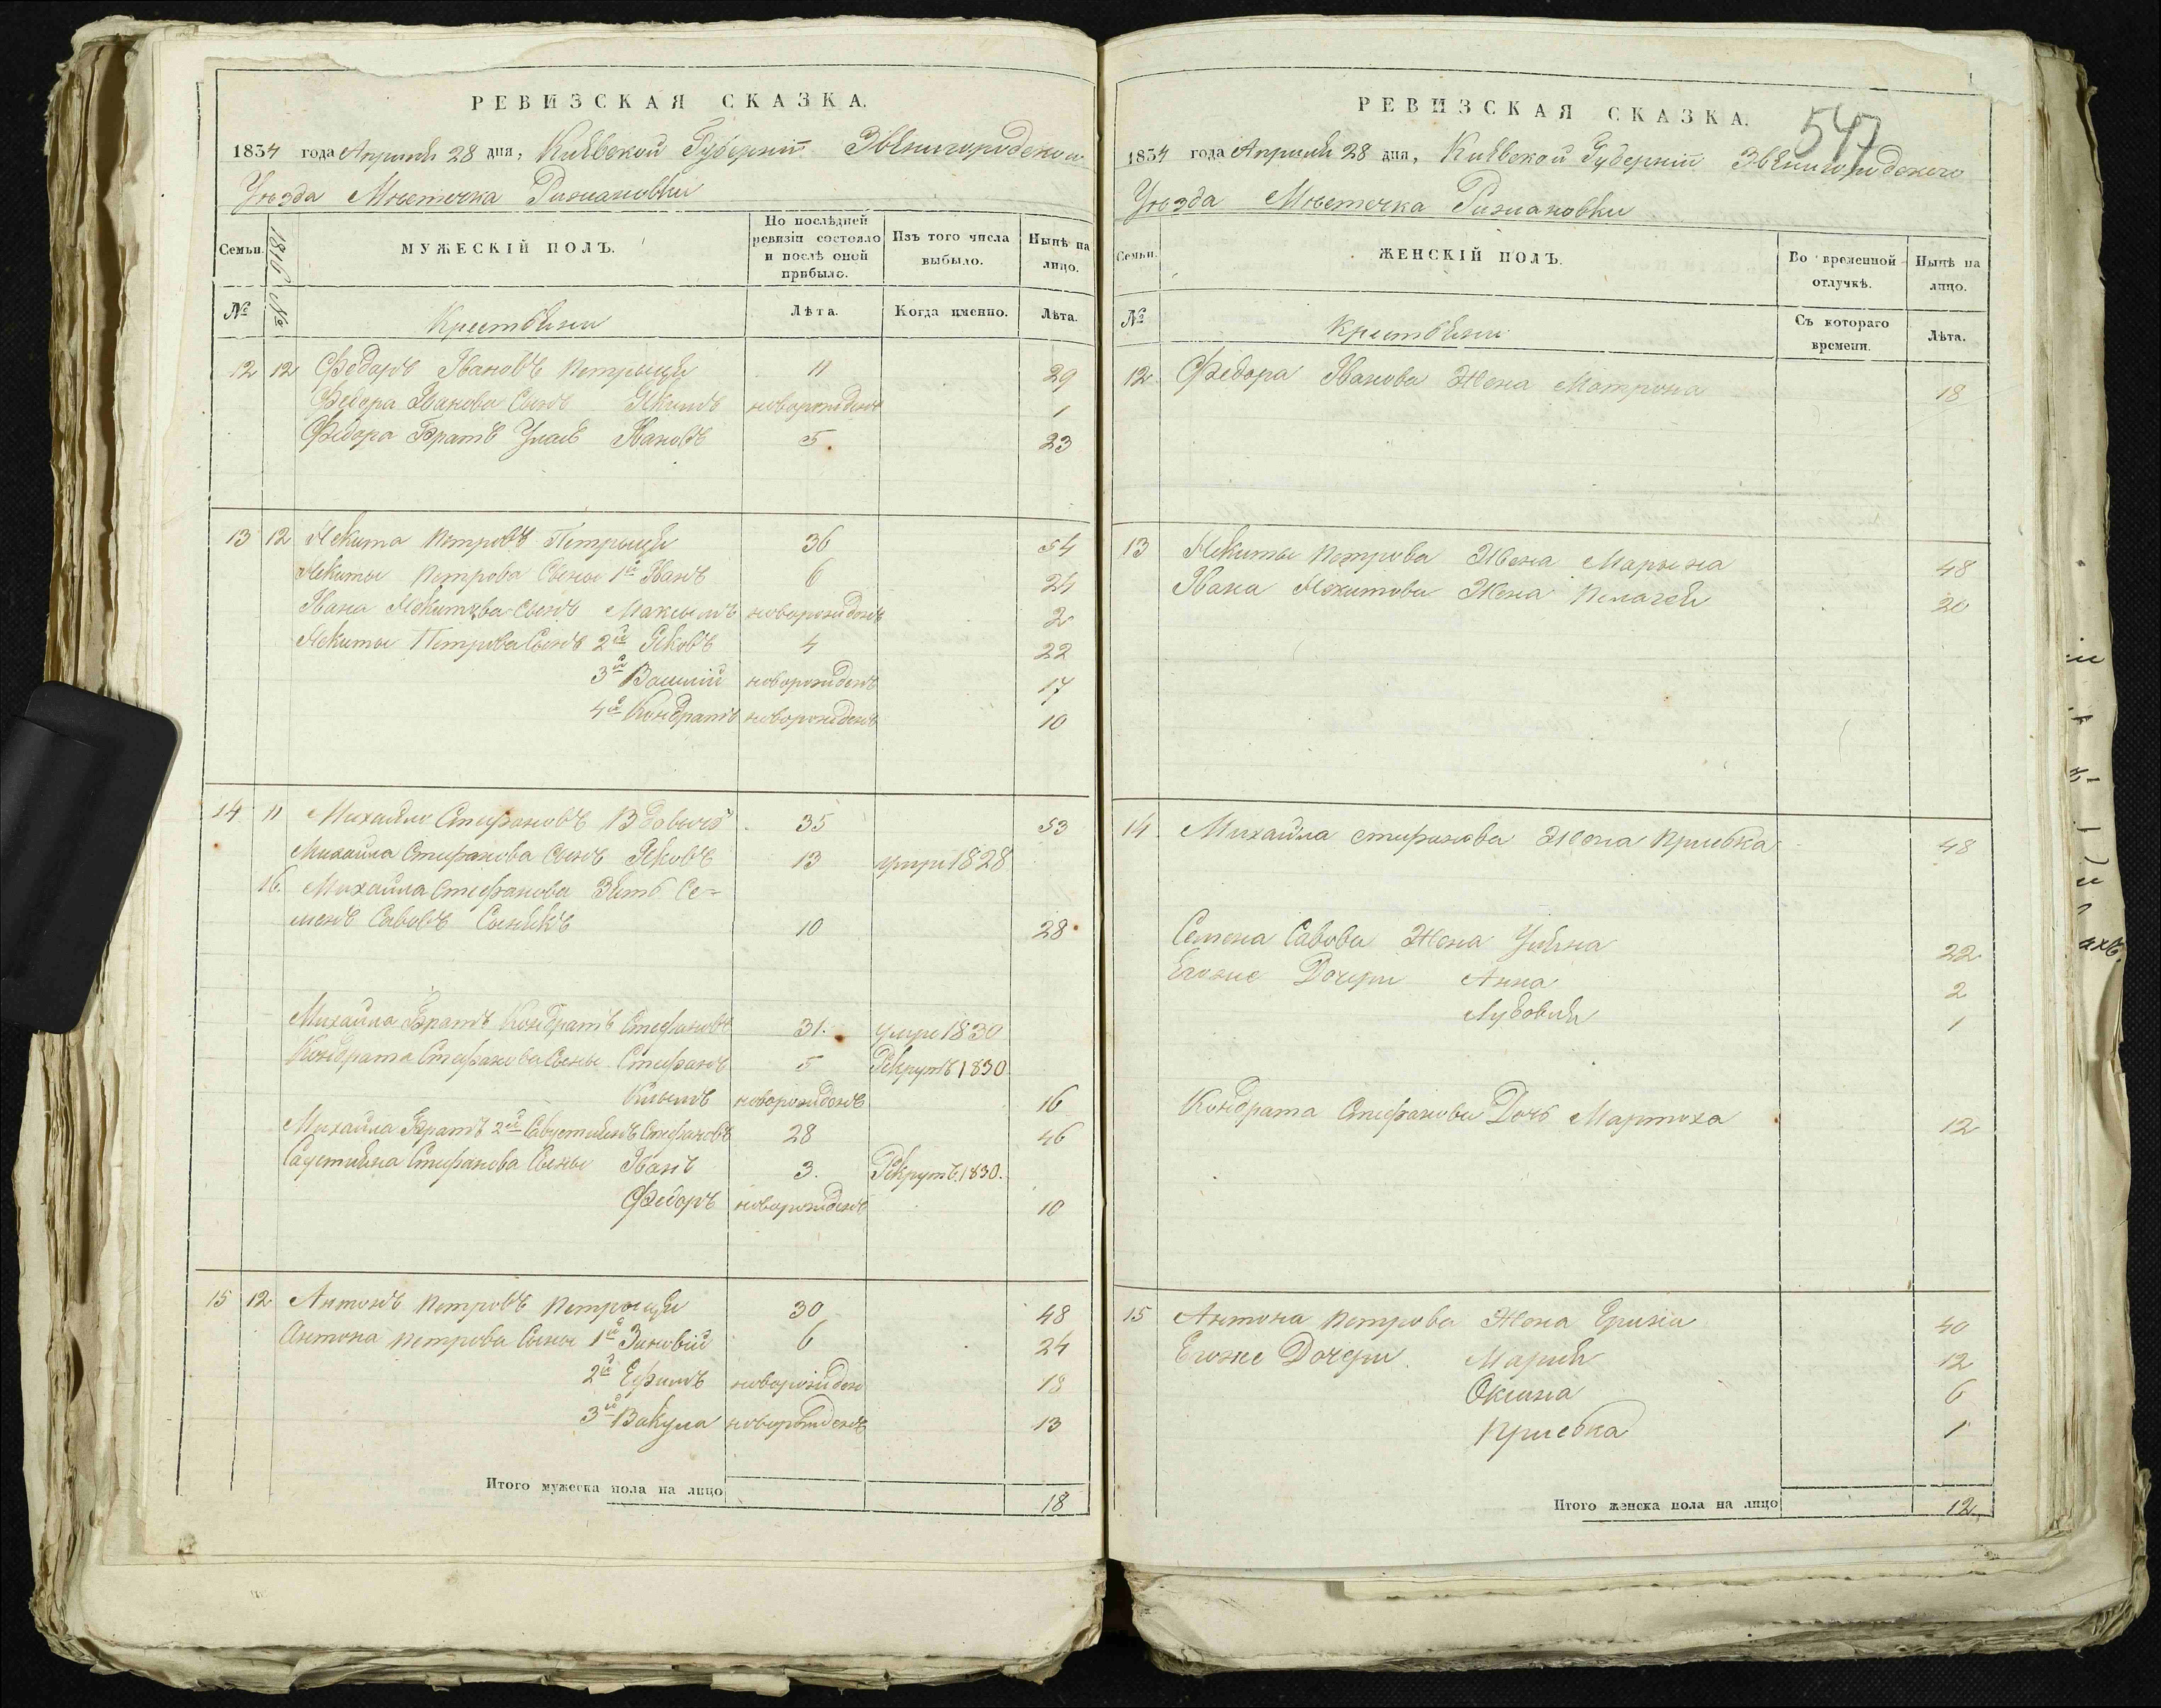 РЕВИЗСКАЯ СКАЗКА.
1834 года Апреля 28 дня, Кіевской Губерніи Звенигородского
Уѣзда Мѣстечка Рижановки
Семьи. 1816 МУЖЕСКІЙ ПОЛЪ. По послѣдней ревизіи состояло и послѣ оной прибыло. Изъ того числа выбыло. Нынѣ на лицо.
№ № Крестьяни Лѣта. Когда именно. Лѣта.
12 12 Федоръ Ивановъ Петрыщи 11 29
Федора Иванова Сынъ Якимъ новорожденъ 1
Федора Братъ Улас Ивановъ 5. 23
13 12 Некита Петровъ Петрыщи 36 54
Некиты Петрова Сыны 1й Иванъ 6 24
Ивана Некитова Сынъ Максымъ новорожденъ 2
Некиты Петрова Сынъ 2й Яковъ 4 22
3й Василий новорожденъ 17
4й Кондратъ новорожденъ 10
14 11 Михайло Стефановъ 35 53
Михайла Стефанова Сынъ Яковъ 13 умре 1828
16. Михайла Стефанова Зять Се=
менъ Савовъ 10 28
Михайла Братъ Кондратъ Стефановъ 31. умре 1830
Кондрата Стефанова Сыны Стефанъ 5 Рекрутъ 1830
Климъ новорожденъ 16
Михайла Братъ 2й Савустиянъ Стефановъ 28 46
Саустияна Стефанова Сыны Иванъ 3. Рекрутъ 1830.
Федоръ новорожденъ 10
15 12 Антонъ Петровъ Петрыщи 30 48
Антона Петрова Сыны 1й Зиновій 6 24
2й Ефимъ новорожден 18
3й Вакула новорожденъ 13
Итого мужеска пола на лицо 18
547
РЕВИЗСКАЯ СКАЗКА.
1834 года Апреля 28 дня, Кіевской Губерніи Звенигородского
Уѣзда Мѣстечка Рижановки
Семьи. ЖЕНСКІЙ ПОЛЪ. Во временной отлучкѣ. Нынѣ на лицо.
№ Крестьяни Съ котораго времени. Лѣта.
12 Федора Иванова Жена Матрона 18
13 Некиты Петрова Жена Марына 48
Ивана Некитова Жена Пелагея 20
14 Михайла Стефанова Жена Приська 48
Семена Савова Жена Уляна 22
Егоже Дочери Анна 2
Лубовия 1
Кондрата Стефанова Дочь Мартоха 12
15 Антона Петрова Жена 40
Егоже Дочери Мария 12
Оксина 6
Приська 1
Итого женска пола на лицо 12